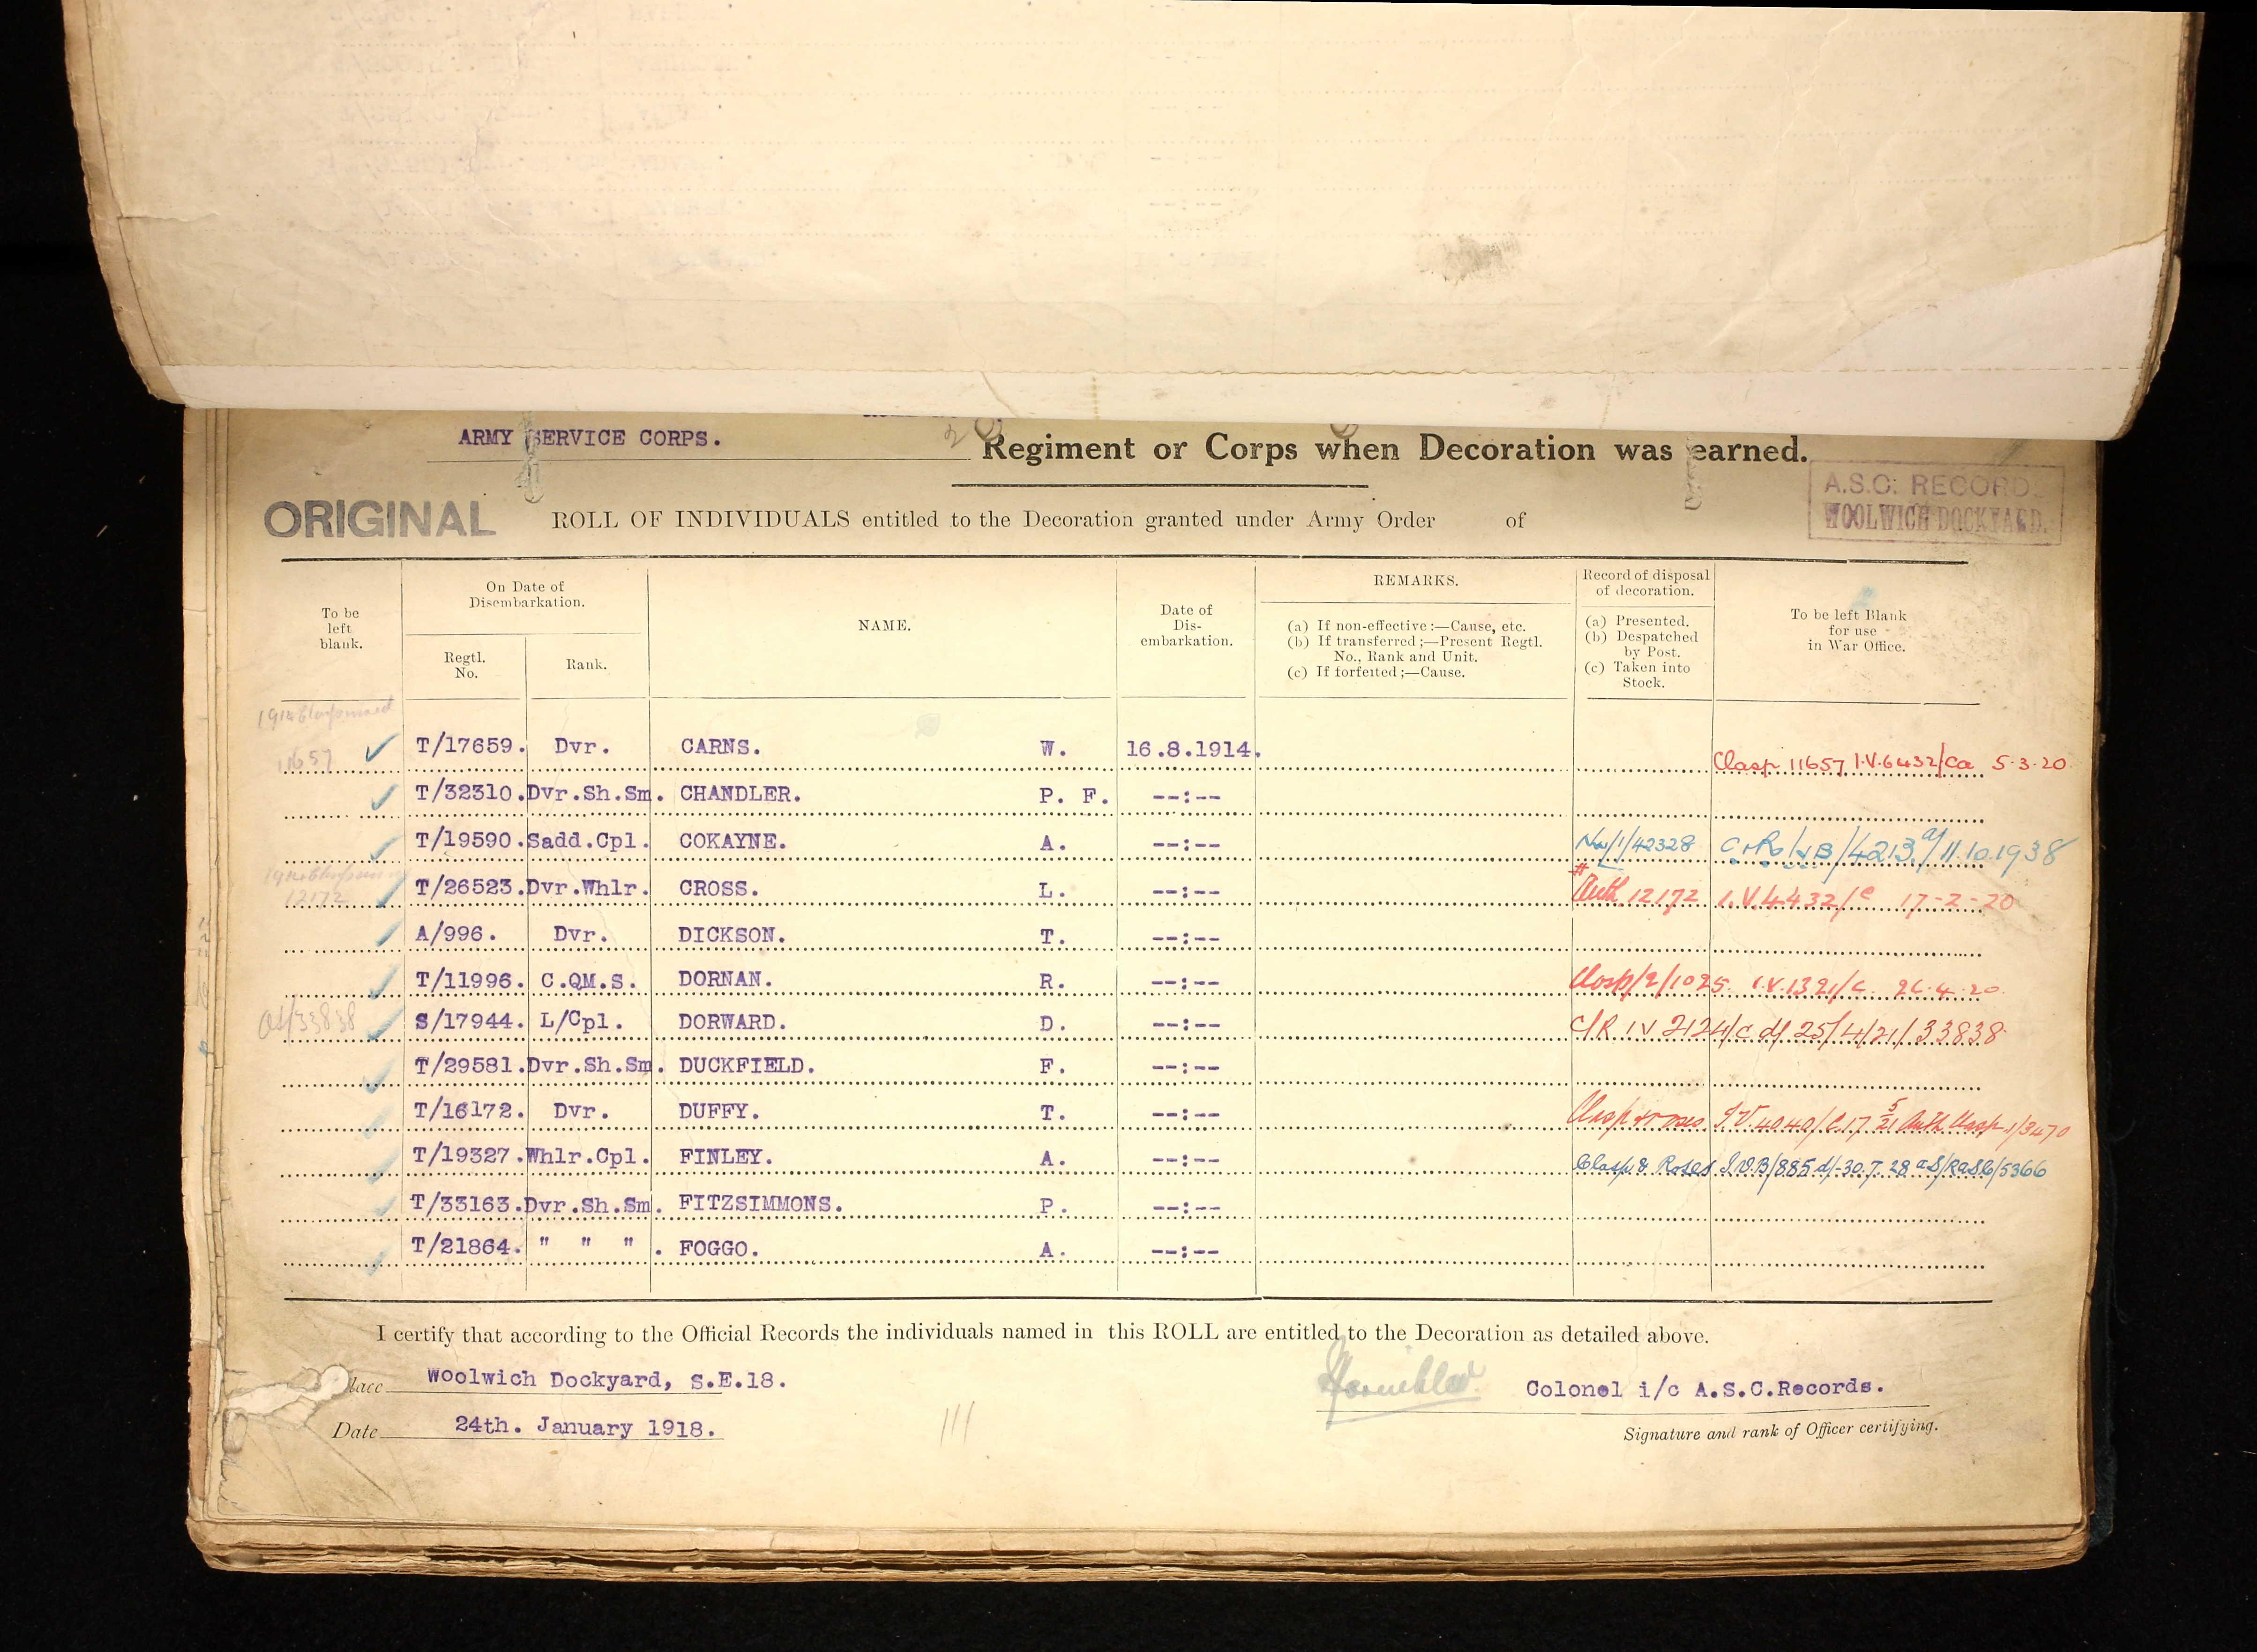 ARMY SERVICE CORPS. Regiment or Corps when Decoration was earned.
A.S.C. RECORD
WOOLWICH DOCKYARD.
ORIGINAL
ROLL OF INDIVIDUALS entitled to the Decoration granted under Army Order of
To be left blank.
On Date of Disembarkation.
Regtl. No.
Rank.
NAME.
Date of Dis-embarkation.
REMARKS.
(a) If non-effective :—Cause, etc.
(b) If transferred ;—Present Regtl. No., Rank and Unit.
(c) If forfeited ;—Cause.
Record of disposal of decoration.
(a) Presented.
(b) Despatched by Post.
(c) Taken into Stock.
To be left Blank for use in War Office.
11657 ✓ T/17659. Dvr. CARNS. W. 16.8.1914. Clasp 11657 I.V.6432/Ca 5.3.20
✓ T/32310. Dvr.Sh.Sm. CHANDLER. P. F. --:--
✓ T/19590. Sadd.Cpl. COKAYNE. A. --:-- /1/42328 /4213 11.10.1938
12172 ✓ T/26523. Dvr.Whlr. CROSS. L. --:-- Auth 12172 I.V.4432/C 17-2-20
✓ A/996. Dvr. DICKSON. T. --:--
✓ T/11996. C.QM.S. DORNAN. R. --:-- Clasp/2/1025 I.V.1321/C. 26.4.20.
/33838 ✓ S/17944. L/Cpl. DORWARD. D. --:-- C/R IV 2124/C d/ 25/4/21/33838
✓ T/29581. Dvr.Sh.Sm. DUCKFIELD. F. --:--
✓ T/16172. Dvr. DUFFY. T. --:-- Clasp & roses I.V.4040/C.17 5/21 Auth Clasp 1/3470
✓ T/19327. Whlr.Cpl. FINLEY. A. --:-- Clasp & Roses I.V.B/885 d/-30.7.28 AS/RASC/5366
✓ T/33163. Dvr.Sh.Sm. FITZSIMMONS. P. --:--
✓ T/21864. " " " . FOGGO. A. --:--
I certify that according to the Official Records the individuals named in this ROLL are entitled to the Decoration as detailed above.
lace Woolwich Dockyard, S.E.18.
Colonel i/c A.S.C.Records.
Date 24th. January 1918.
Signature and rank of Officer certifying.
111